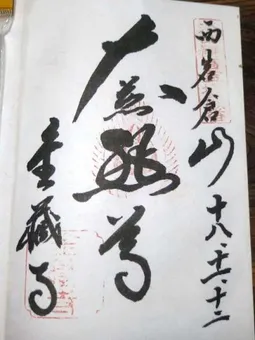 西岩倉山
十八、十一、十二
大慈悲尊
金蔵寺